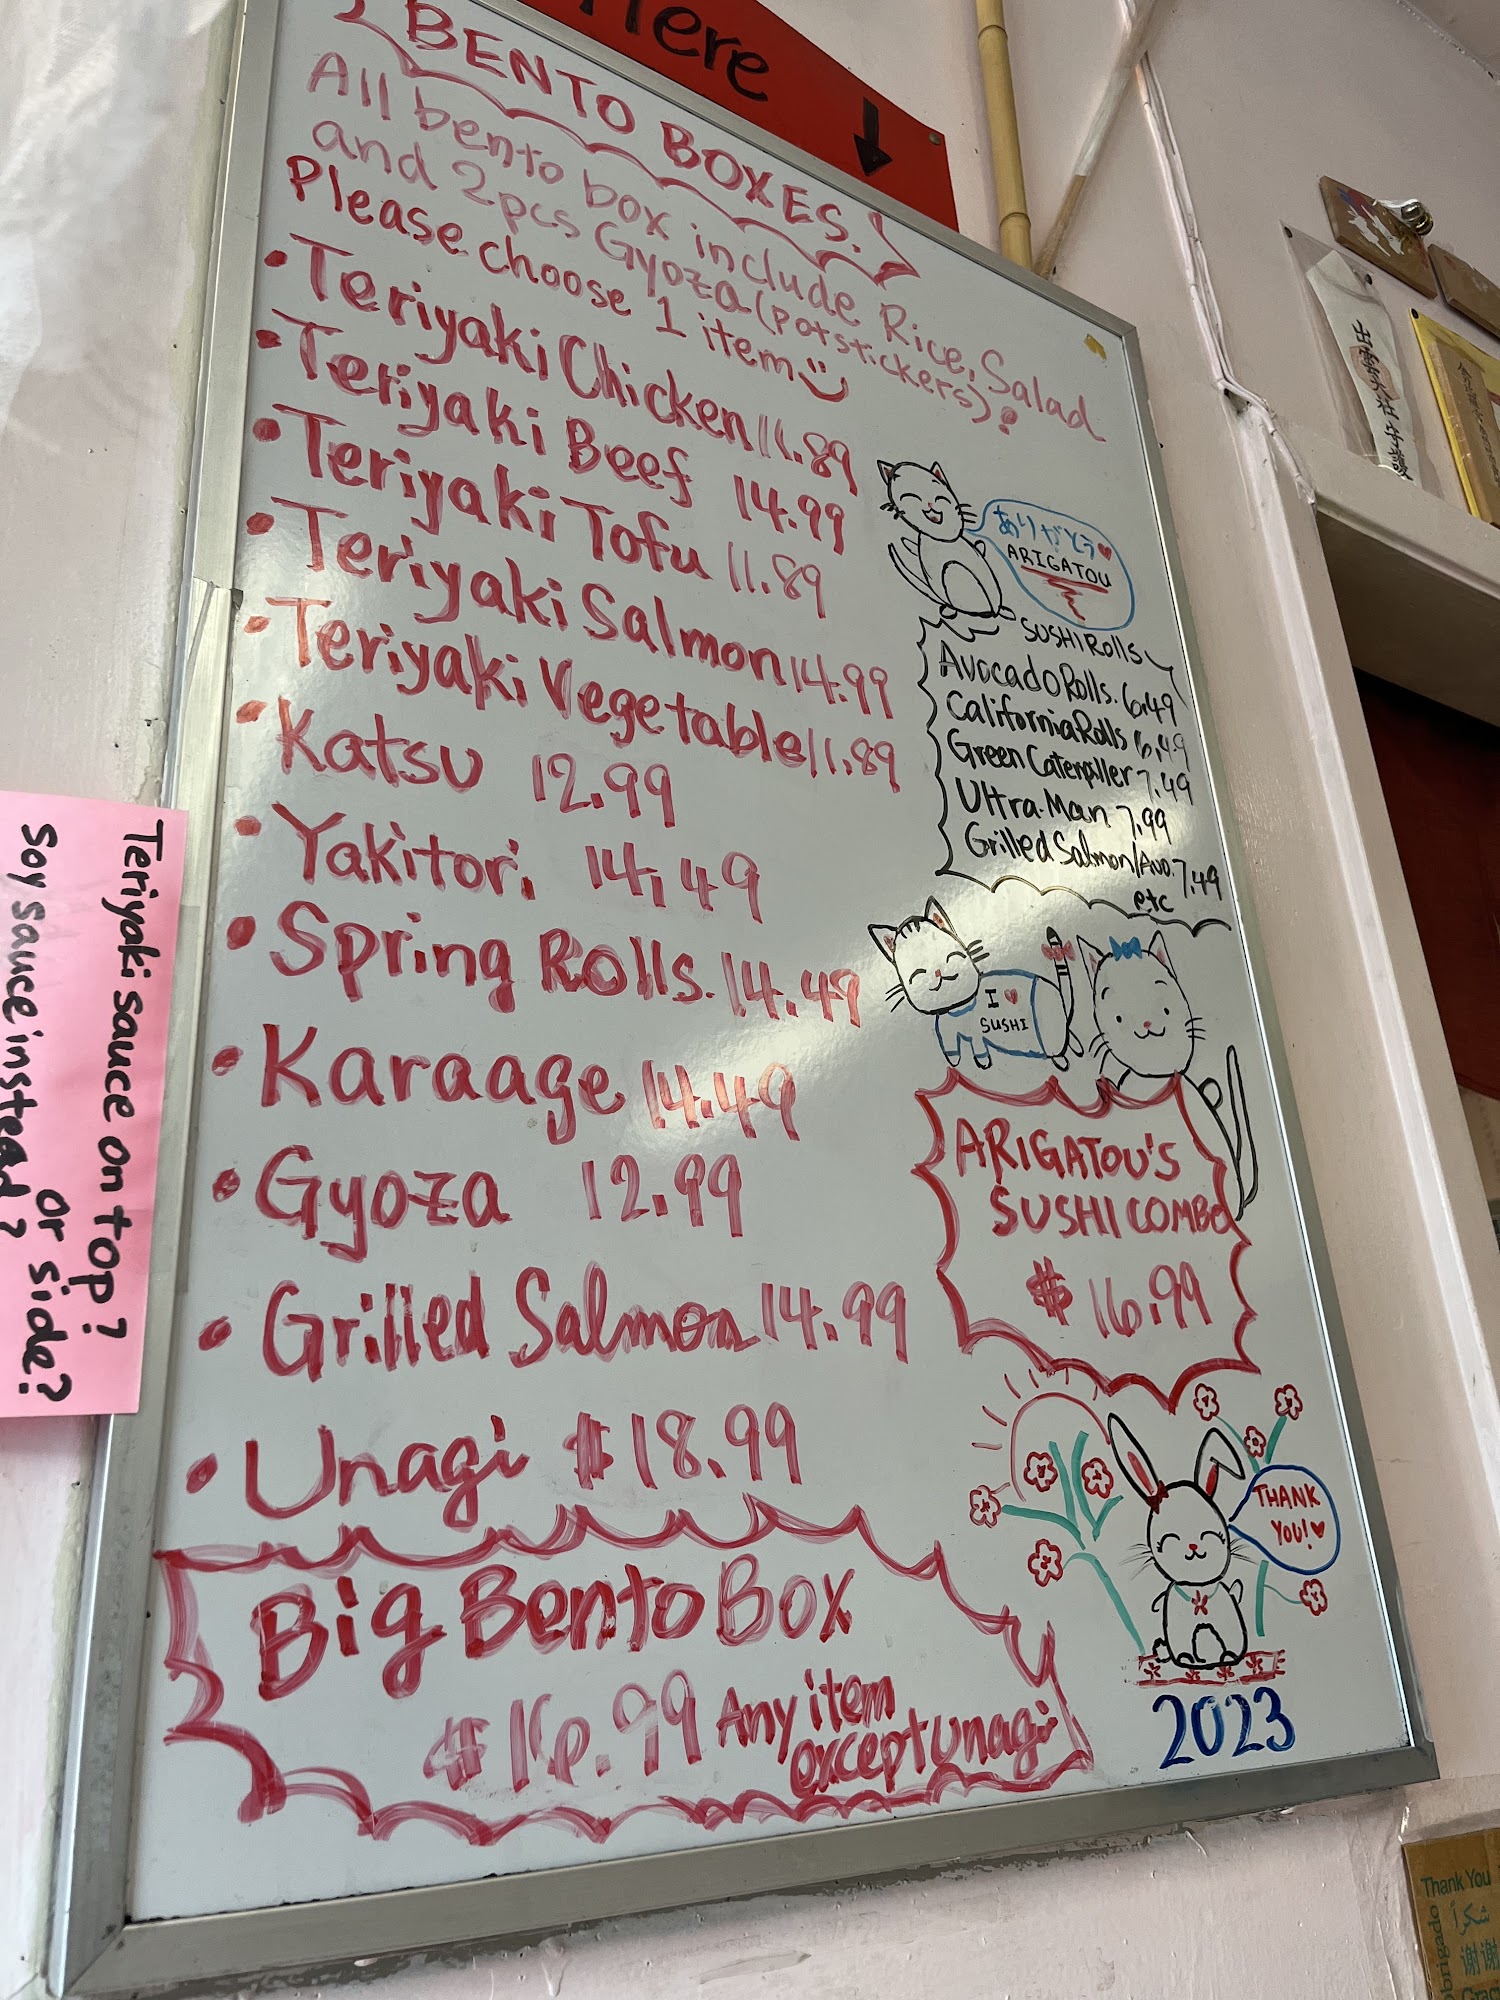 Here
BENTO BOXES.
All bento box include Rice, Salad
and 2pcs Gyoza (potstickers)!
Please choose 1 item
•Teriyaki Chicken 11.89
•Teriyaki Beef 14.99
•Teriyaki Tofu 11.89
•Teriyaki Salmon 14.99
•Teriyaki Vegetable 11.89
•Katsu 12.99
•Yakitori 14.49
•Spring Rolls. 14.49
•Karaage 14.49
•Gyoza 12.99
•Grilled Salmon 14.99
•Unagi $18.99
Big Bento Box
$16.99 Any item
except unagi
ありがとう
ARIGATOU
SUSHI Rolls
Avocado Rolls. 6.49
California Rolls 6.49
Green Caterpiller 7.49
Ultra-Man 7.99
Grilled Salmon/Avo. 7.49
etc
I ♥
SUSHI
ARIGATOU'S
SUSHI COMBO
$16.99
THANK
YOU!♥
2023
Teriyaki sauce on top?
or side?
Soy sauce instead?
Thank You
شكراً
谢谢